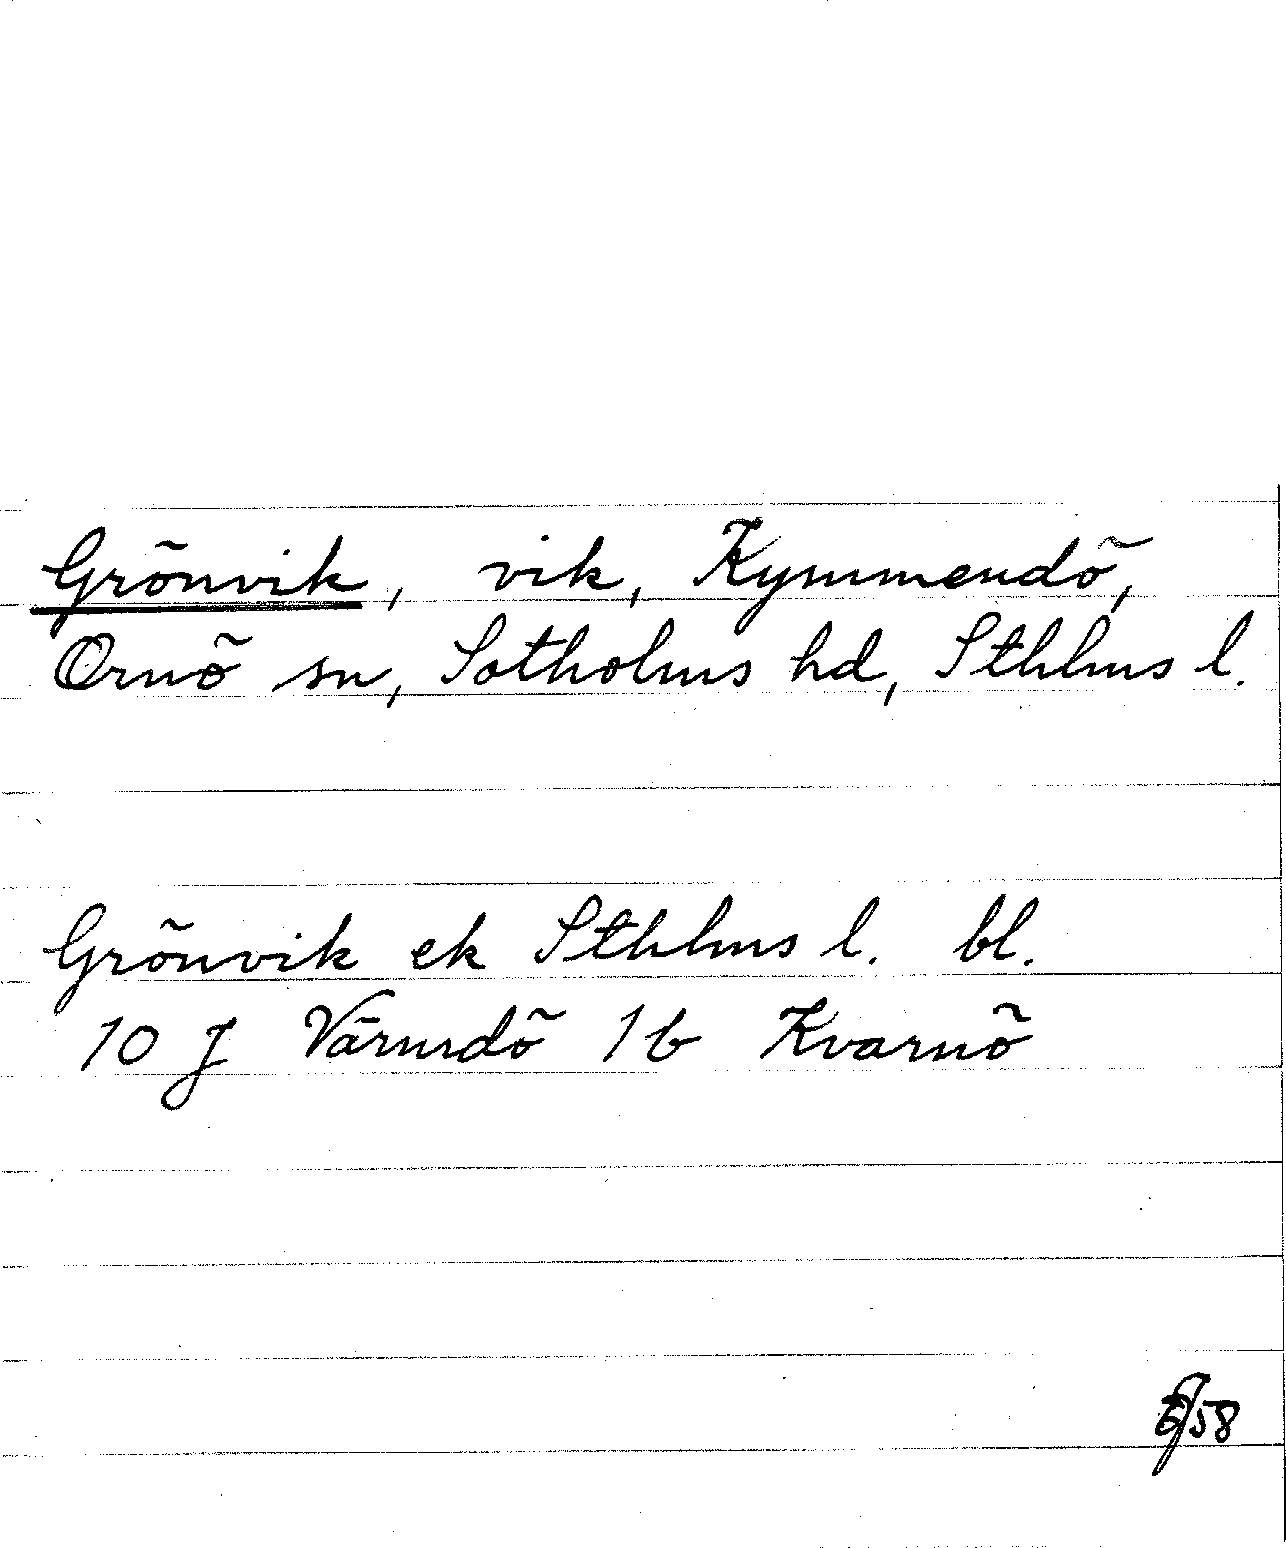 Grönvik, vik, Kymmendö,
Ornö sn, Sotholms hd, Sthlms l.
Grönvik ek Sthlms l. bl.
10 J Värmdö 1b Kvarnö
58